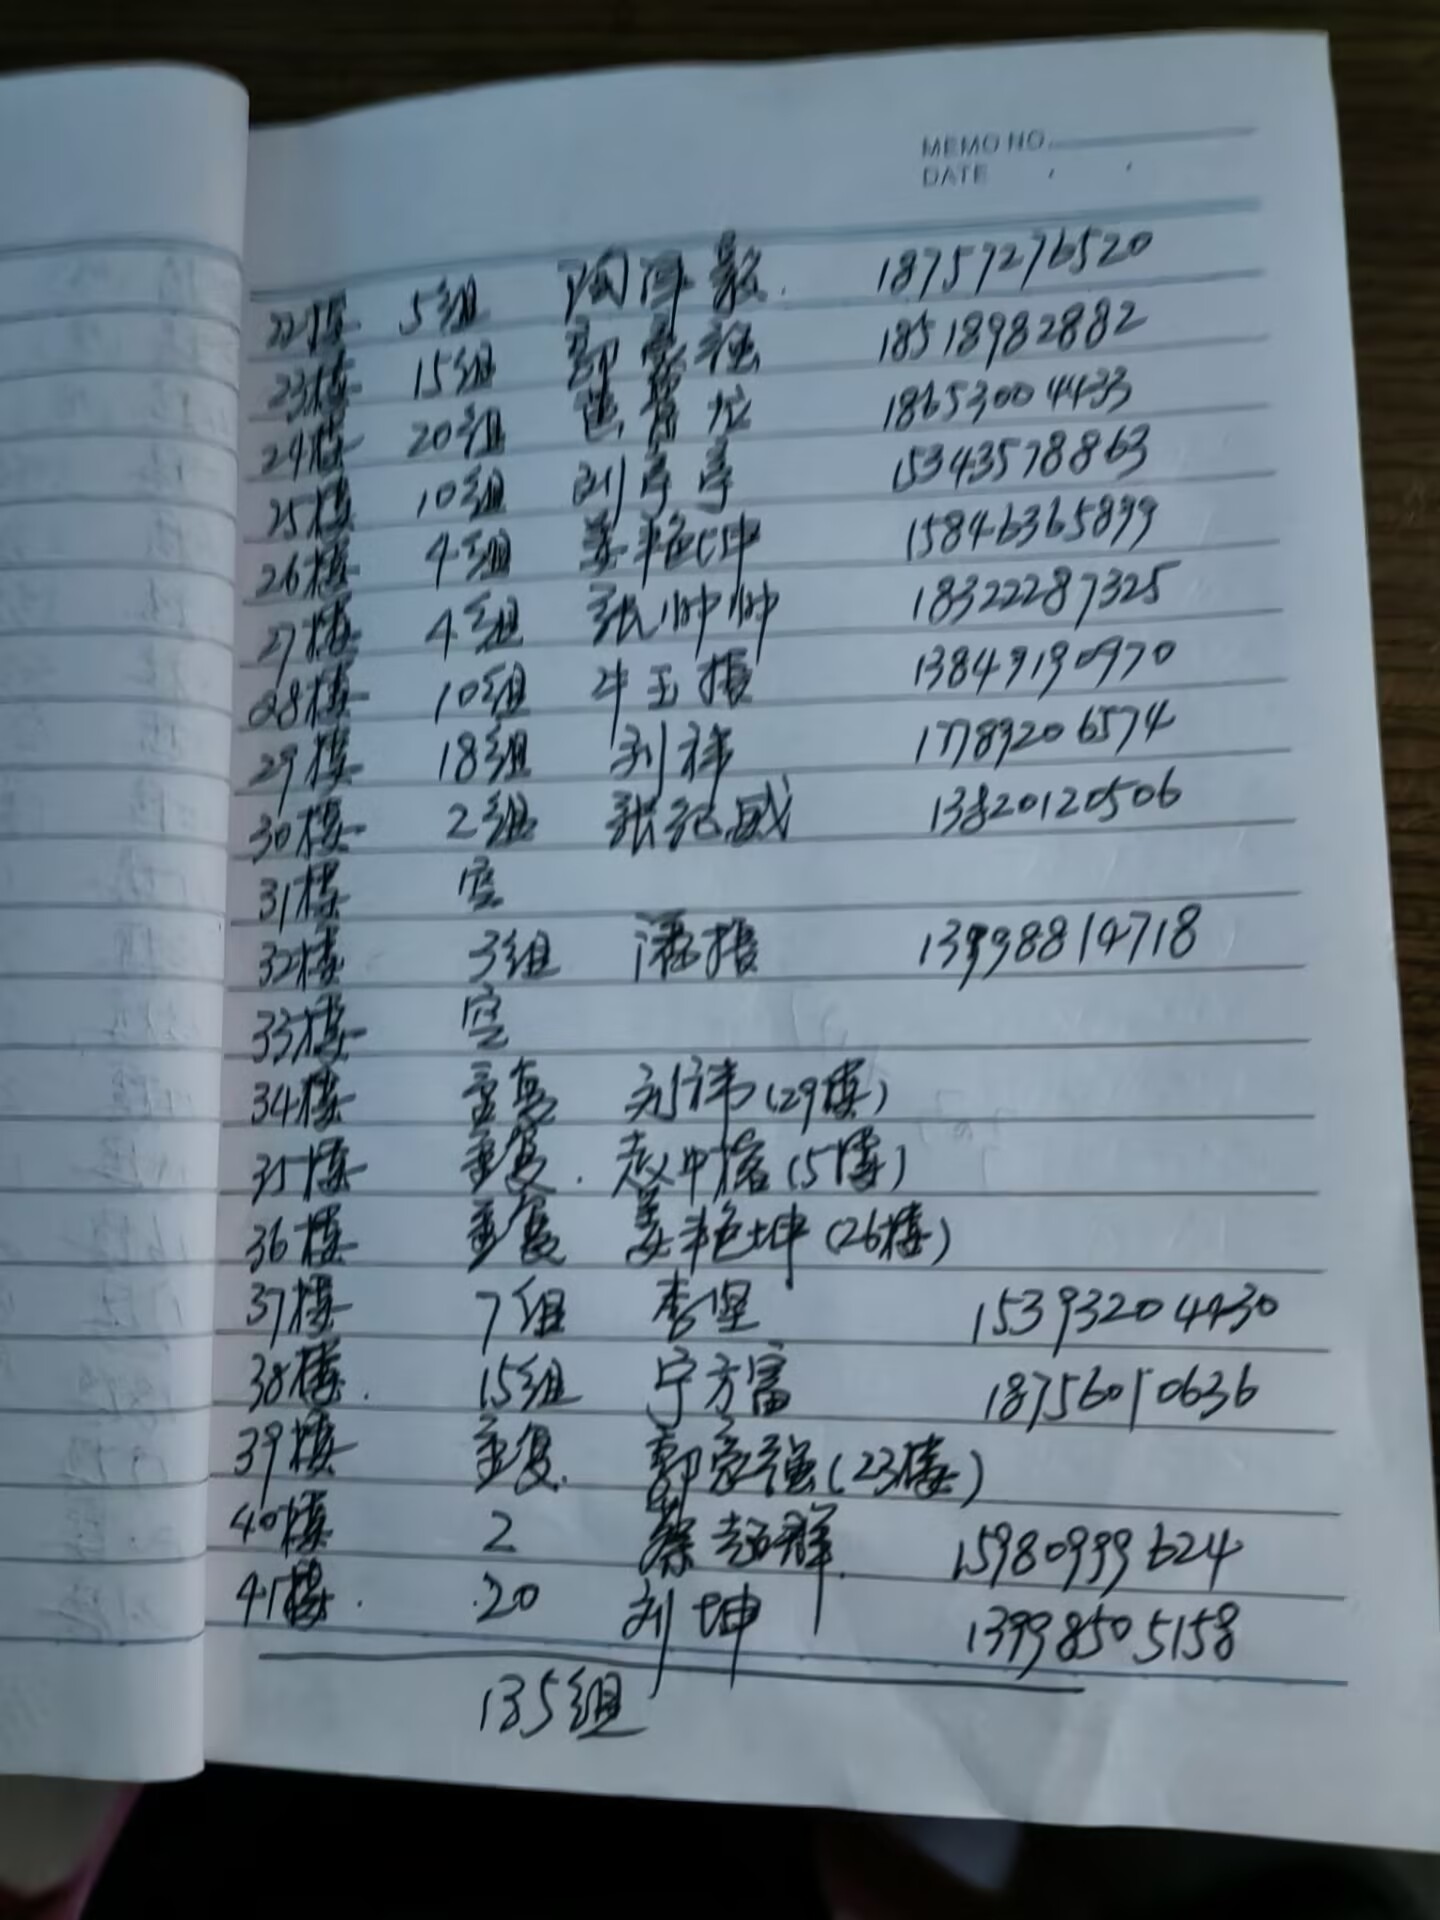 MEMO NO.
DATE
22楼 5组 陶 18757276520
23楼 15组 郭家强 18518982882
24楼 20组 18653004433
25楼 10组 刘彦彦 15343578863
26楼 4组 姜艳坤 15846365899
27楼 4组 张帅帅 18322287325
28楼 10组 牛玉振 13849190970
29楼 18组 刘祎 17789206574
30楼 2组 张纪威 13820120506
31楼 空
32楼 3组 潘振 13998814718
33楼 空
34楼 重复 刘祎(29楼)
35楼 重复. 赵中榕(5楼)
36楼 重复 姜艳坤(26楼)
37楼 7组 李坚 15393204430
38楼. 15组 宁方富 18756010636
39楼 重复. 郭家强(23楼)
40楼 2 蔡超群 15980999624
41楼. 20 刘坤 13998505158
135组